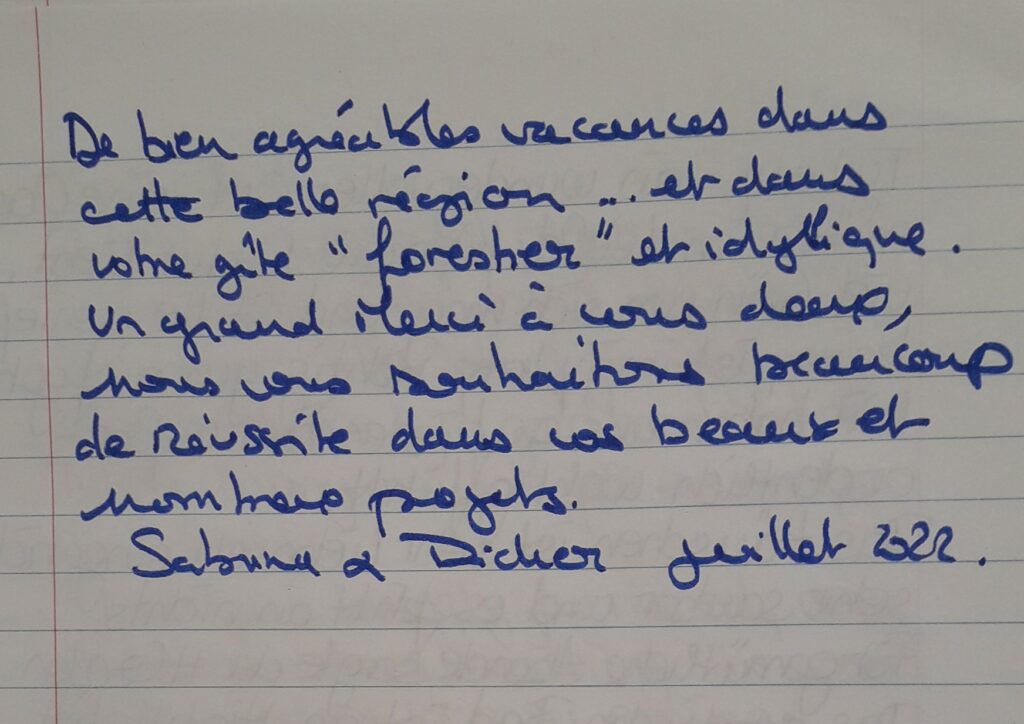 De bien agréables vacances dans
cette belle région ... et dans
votre gîte "forestier" et idyllique.
Un grand Merci à vous deux,
nous vous souhaitons beaucoup
de réussite dans vos beaux et
nombreux projets.
Sabrina & Didier juillet 2022.